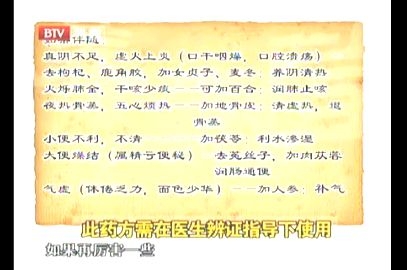 BTV
如果伴随：
真阴不足，虚火上炎（口干咽燥，口腔溃疡）
去枸杞、鹿角胶，加女贞子、麦冬：养阴清热
火烁肺金，干咳少痰——可加百合：润肺止咳
夜热骨蒸，五心烦热——加地骨皮：清虚热，退
骨蒸
小便不利，不清 加茯苓：利水渗湿
大便燥结（属精亏便秘） 去菟丝子，加肉苁蓉
润肠通便
气虚（体倦乏力，面色少华）——加人参：补气
此药方需在医生辨证指导下使用
如果再厉害一些